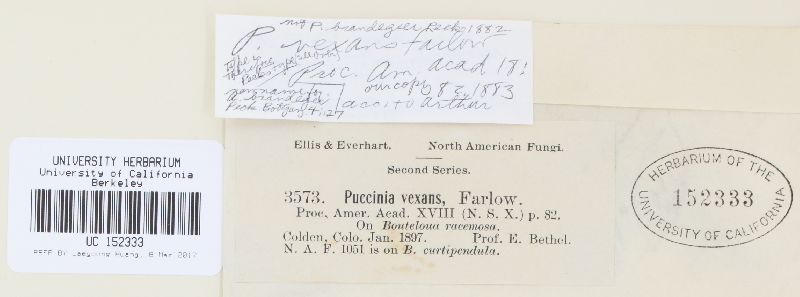 not P. brandegei Peck 1882
P. vexans Farlow
Type is
therefore
Peck's type
Proc. Am. acad 18:
our copy 83, 1883
nom name for
a. brandegei
Peck Bot gaz 4:127
acc. to Arthur
UNIVERSITY HERBARIUM
University of California
Berkeley
UC 152333
PREP BY Jaeyoung Huang, 6 Mar 2017
Ellis & Everhart. North American Fungi.
Second Series.
3573. Puccinia vexans, Farlow.
Proc. Amer. Acad. XVIII (N. S. X.) p. 82.
On Bouteloua racemosa.
Golden, Colo. Jan. 1897. Prof. E. Bethel.
N. A. F. 1051 is on B. curtipendula.
HERBARIUM OF THE
152333
UNIVERSITY OF CALIFORNIA